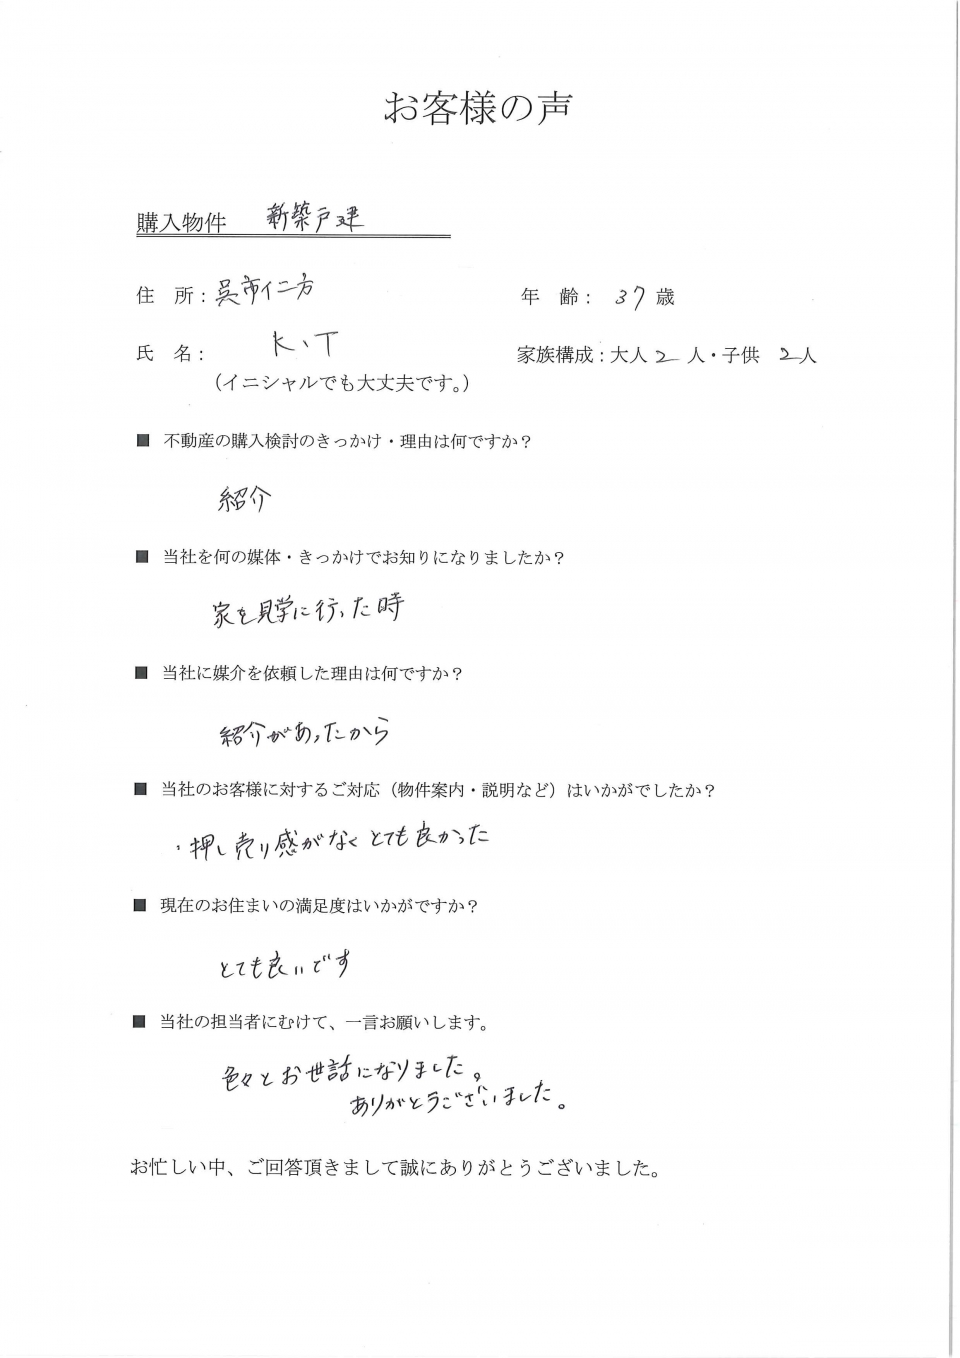 お客様の声
購入物件 新築戸建
住 所：呉市仁方 年 齢： 37 歳
氏 名： K.T 家族構成：大人 2 人・子供 2人
（イニシャルでも大丈夫です。）
■ 不動産の購入検討のきっかけ・理由は何ですか？
紹介
■ 当社を何の媒体・きっかけでお知りになりましたか？
家を見学に行った時
■ 当社に媒介を依頼した理由は何ですか？
紹介があったから
■ 当社のお客様に対するご対応（物件案内・説明など）はいかがでしたか？
・押し売り感がなくとても良かった
■ 現在のお住まいの満足度はいかがですか？
とても良いです
■ 当社の担当者にむけて、一言お願いします。
色々とお世話になりました。
ありがとうございました。
お忙しい中、ご回答頂きまして誠にありがとうございました。